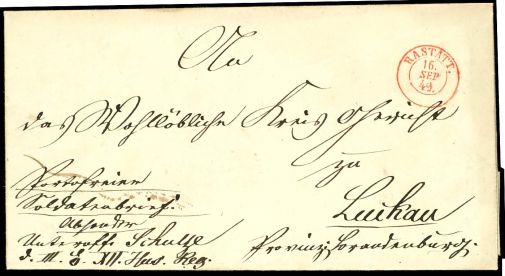 An
RASTATT.
16.
SEP
49.
das Wohllöbliche Kreis Gericht
zu
Luckau
Provinz Brandenburg.
Portofreier
Soldatenbrief.
Absender
Unteroff. Schulze
d. III. E. XII. Hus. Reg.